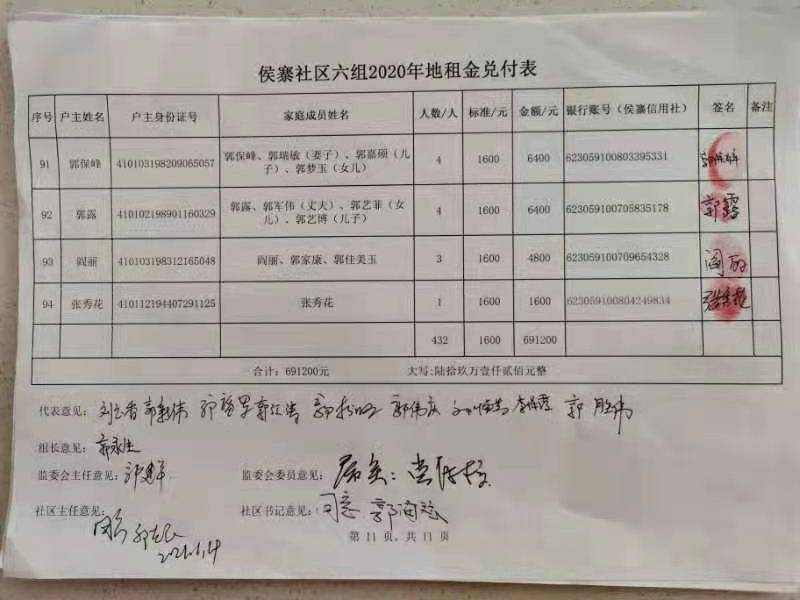 侯寨社区六组2020年地租金兑付表
序号 户主姓名 户主身份证号 家庭成员姓名 人数/人 标准/元 金额/元 银行账号（侯寨信用社） 签名 备注
91 郭保峰 410103198209065057 郭保峰、郭瑞敏（妻子）、郭嘉硕（儿子）、郭梦玉（女儿） 4 1600 6400 623059100803395331
92 郭露 410102198901160329 郭露、郭军伟（丈夫）、郭艺菲（女儿）、郭艺博（儿子） 4 1600 6400 623059100705835178 郭露
93 阎丽 410103198312165048 阎丽、郭家康、郭佳美玉 3 1600 4800 623059100709654328 阎丽
94 张秀花 410112194407291125 张秀花 1 1600 1600 623059100804249834
432 1600 691200
合计：691200元 大写:陆拾玖万壹仟贰佰元整
代表意见：
组长意见：
监委会主任意见： 监委会委员意见：
社区主任意见： 社区书记意见：
第 11 页，共 11 页